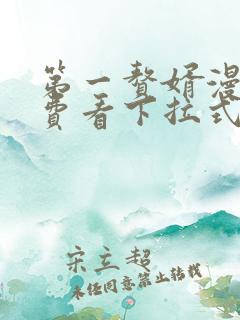 第一赘婿漫
费看下拉式
宋立超
未经同意禁止转载